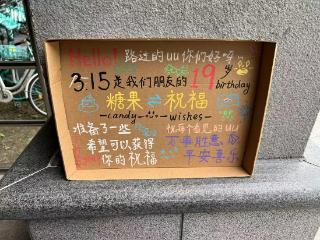 Hello! 路过的uu你们好呀
3.15是我们朋友的19
birthday
糖果⇌祝福
—candy— —wishes—
准备了一些
希望可以获得
你的祝福
祝每个看见的uu
万事胜意
平安喜乐